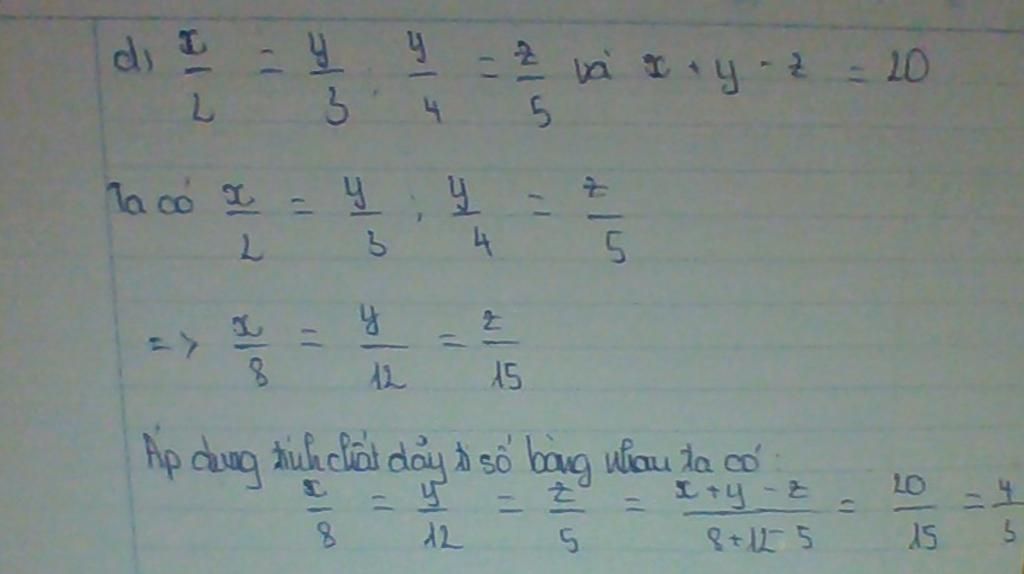 d, x/2 = y/3 , y/4 = z/5 và x + y - z = 20
Ta có x/2 = y/3 ; y/4 = z/5
=> x/8 = y/12 = z/15
Áp dụng tính chất dãy tỉ số bằng nhau ta có:
x/8 = y/12 = z/5 = x+y-z/8+12-5 = 20/15 = 4/3